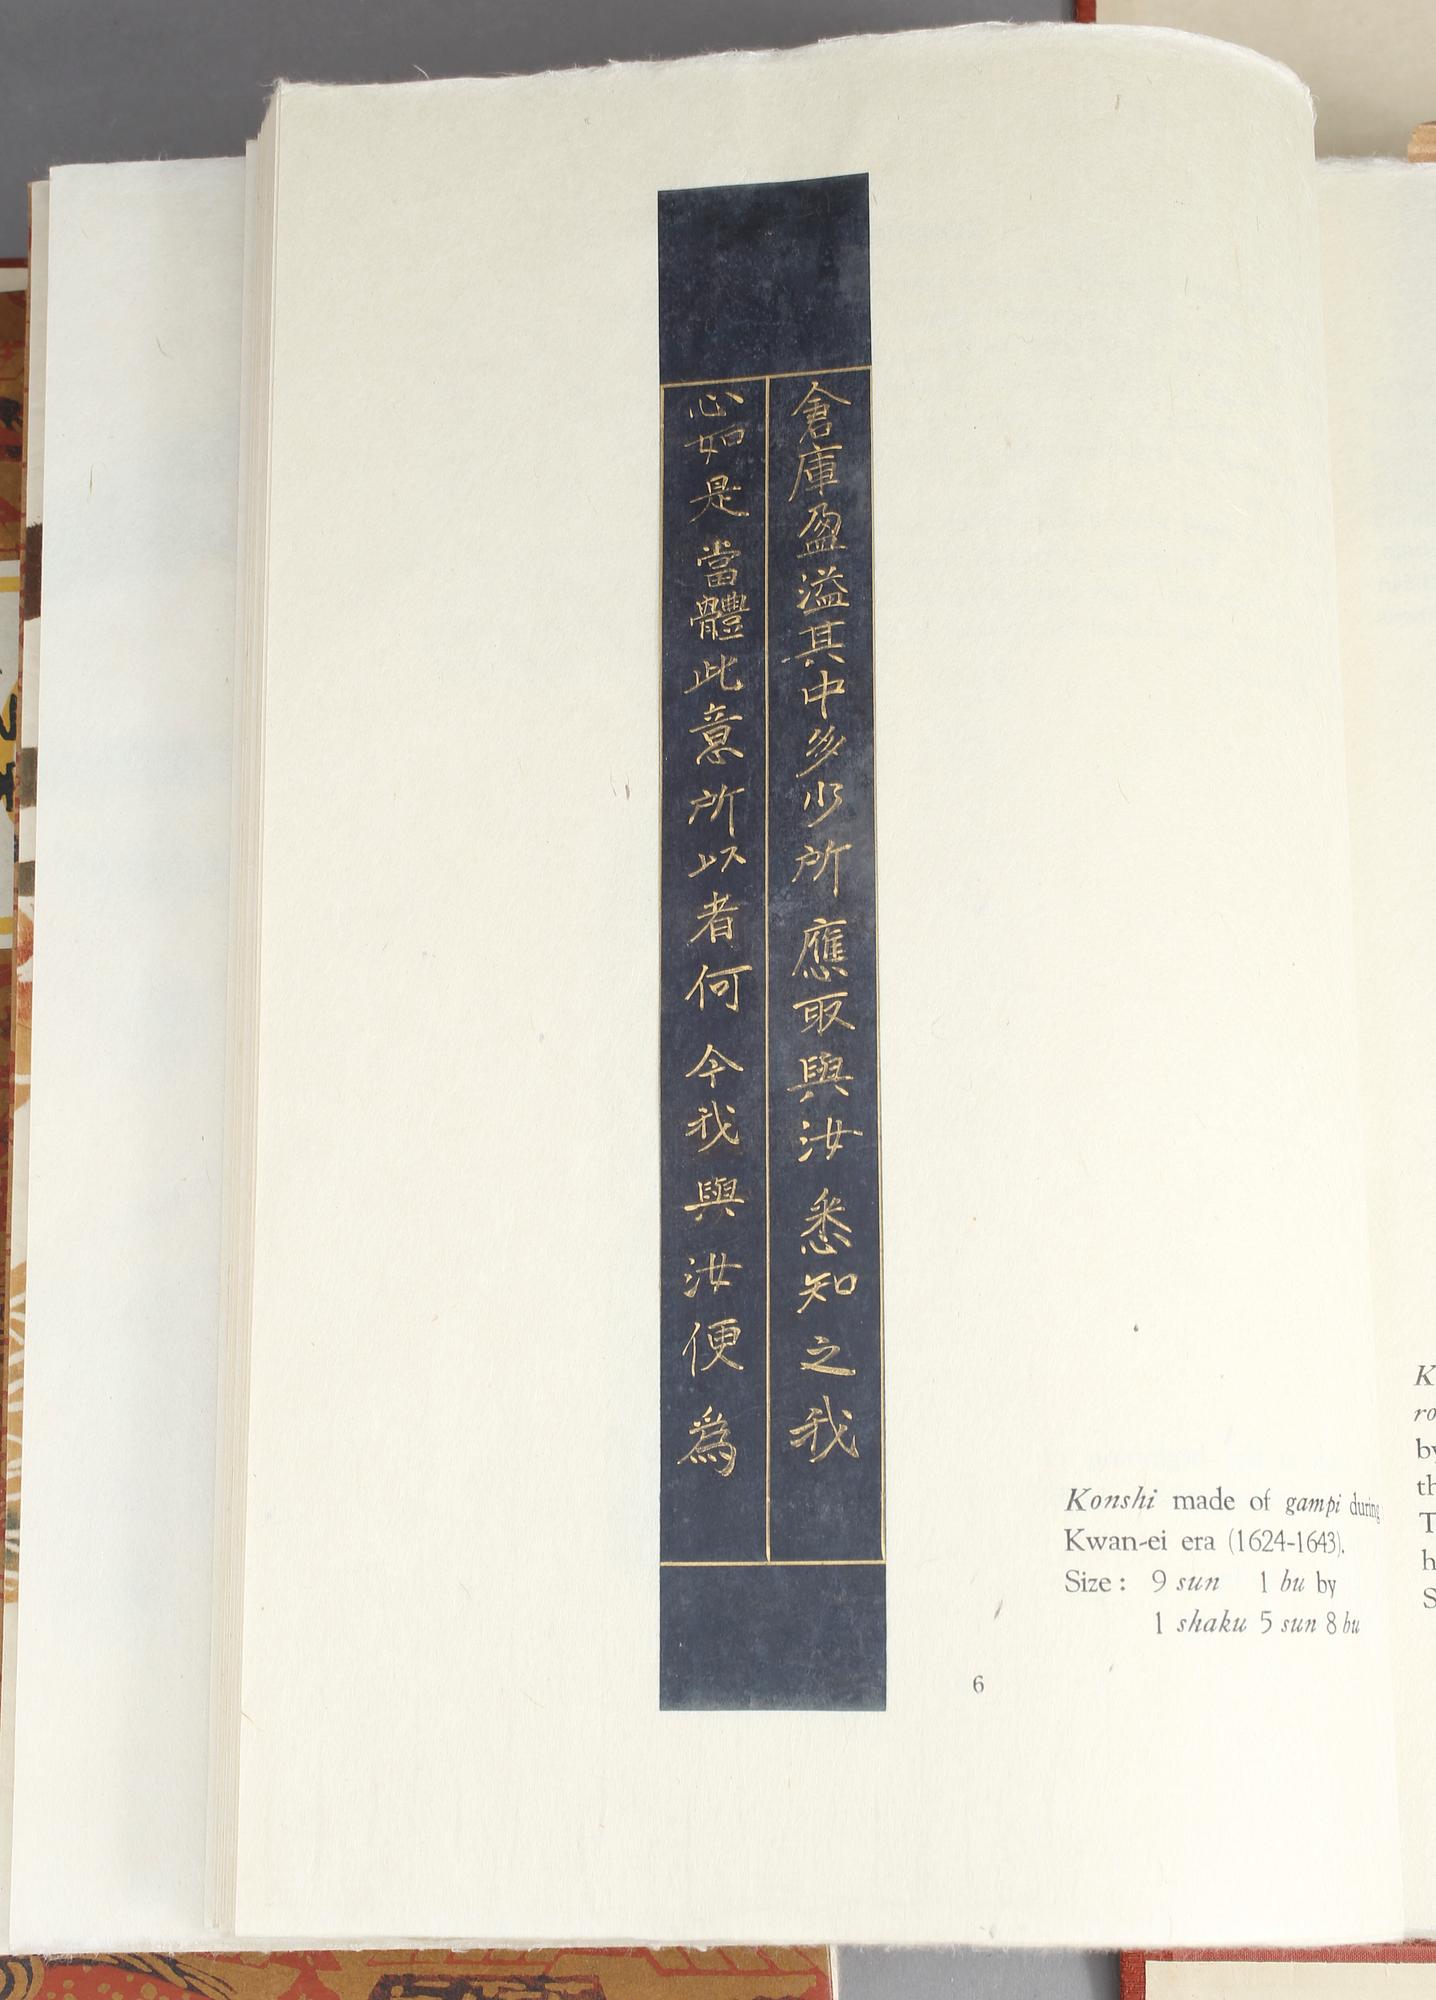 倉庫盈溢其中多少所應取與汝悉知之我
心如是當體此意所以者何今我與汝便為
Konshi made of gampi during
Kwan-ei era (1624-1643).
Size : 9 sun 1 bu by
1 shaku 5 sun 8 bu
6